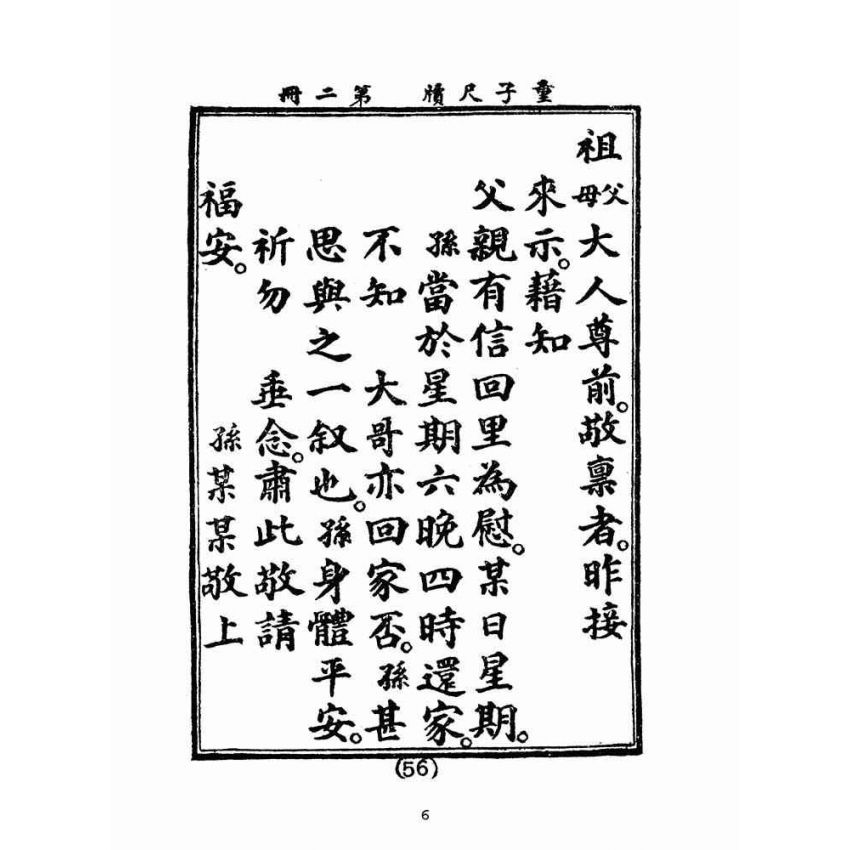 童子尺牘　第二冊
祖父母大人尊前。敬禀者。昨接
來示。藉知
父親有信回里為慰。某日星期。
孫當於星期六晚四時還家。
不知　大哥亦回家否。孫甚
思與之一叙也。孫身體平安。
祈勿　垂念。肅此敬請
福安。　孫某某敬上
(56)
6